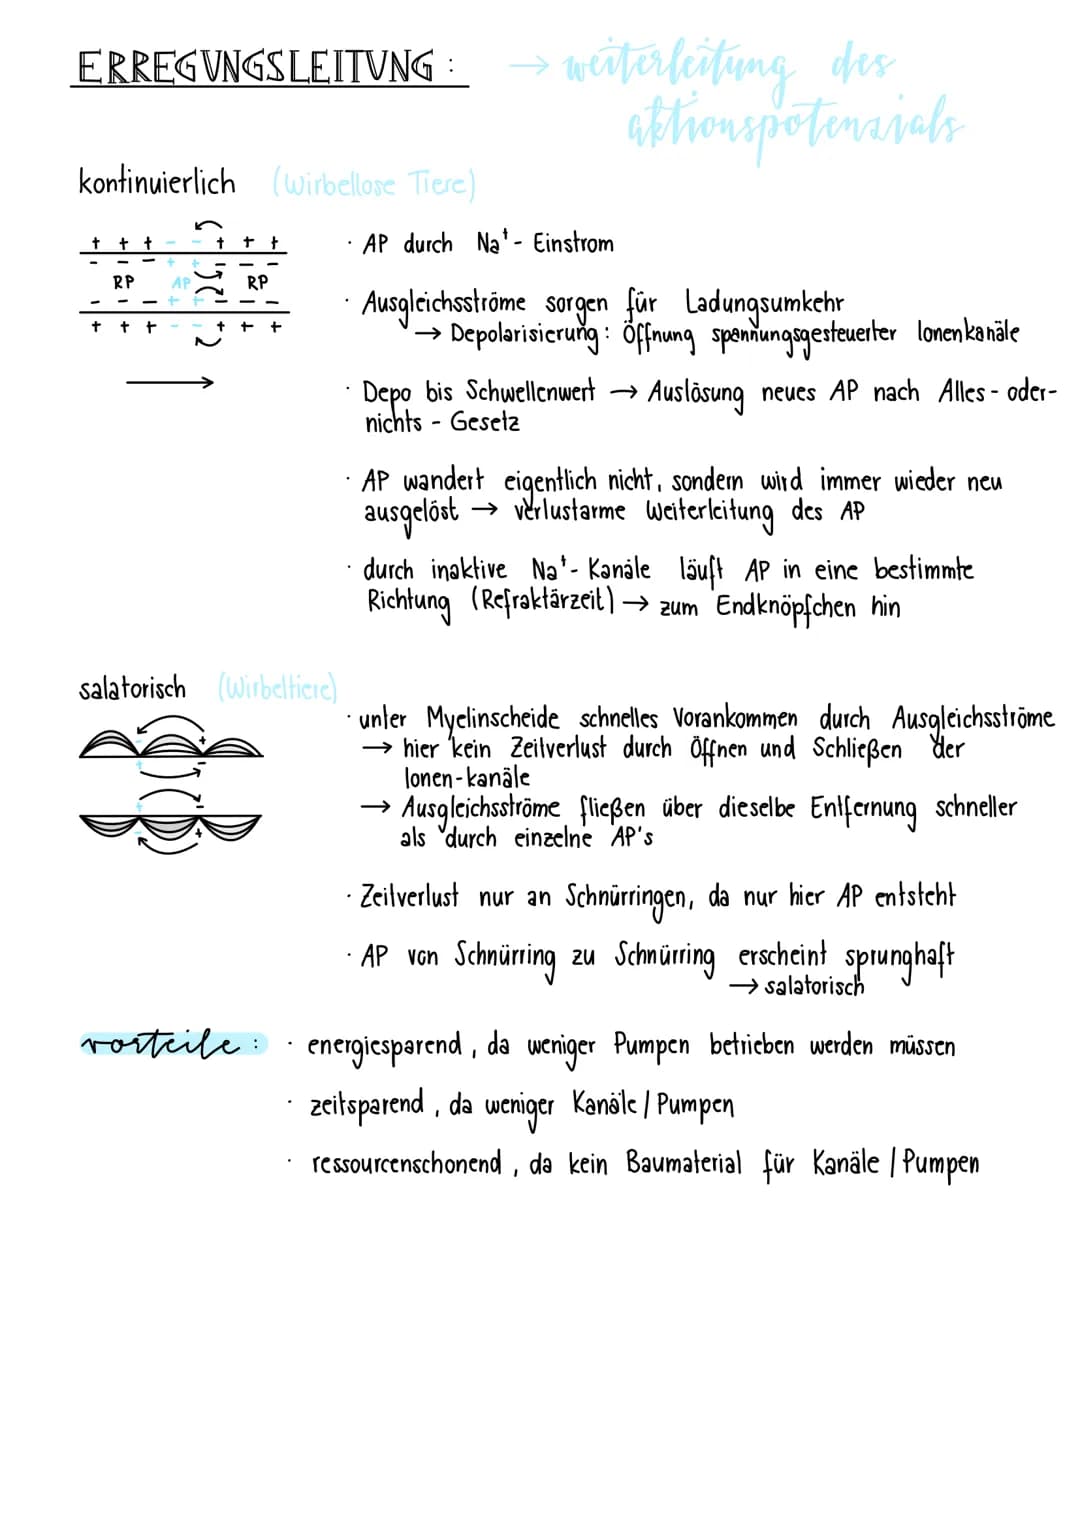 ERREGUNGSLEITUNG : → weiterleitung des
aktionspotenzials
kontinuierlich (Wirbellose Tiere)
+ + + - - + + +
- - - + + - - -
RP AP RP
- - - + + - - -
+ + + - - + + +
· AP durch Na⁺- Einstrom
· Ausgleichsströme sorgen für Ladungsumkehr
→ Depolarisierung: Öffnung spannungsgesteuerter Ionenkanäle
· Depo bis Schwellenwert → Auslösung neues AP nach Alles-oder-
nichts - Gesetz
· AP wandert eigentlich nicht, sondern wird immer wieder neu
ausgelöst → verlustarme Weiterleitung des AP
· durch inaktive Na⁺- Kanäle läuft AP in eine bestimmte
Richtung (Refraktärzeit) → zum Endknöpfchen hin
salatorisch (Wirbeltiere)
- +
+ -
+ -
- +
· unter Myelinscheide schnelles Vorankommen durch Ausgleichsströme
→ hier kein Zeitverlust durch Öffnen und Schließen der
Ionen-kanäle
→ Ausgleichsströme fließen über dieselbe Entfernung schneller
als durch einzelne AP's
· Zeitverlust nur an Schnürringen, da nur hier AP entsteht
· AP von Schnürring zu Schnürring erscheint sprunghaft
→ salatorisch
vorteile : · energiesparend, da weniger Pumpen betrieben werden müssen
· zeitsparend, da weniger Kanäle / Pumpen
· ressourcenschonend, da kein Baumaterial für Kanäle / Pumpen